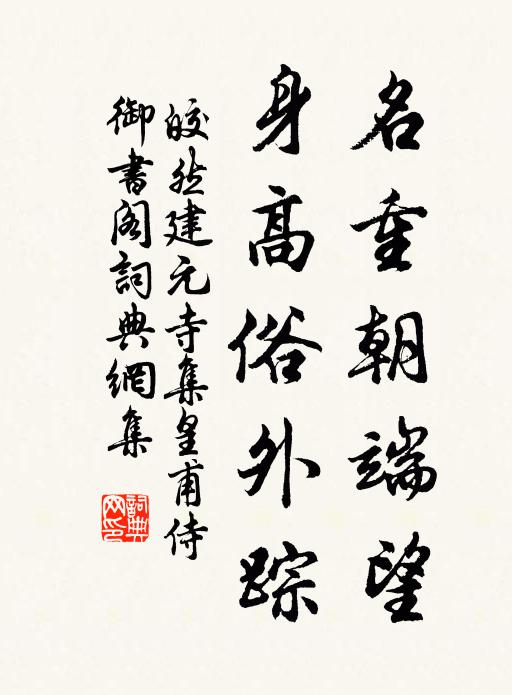 名重朝端望
身高俗外踪
皎然建元寺集皇甫侍
御書阁詞典網集
詞典
网印